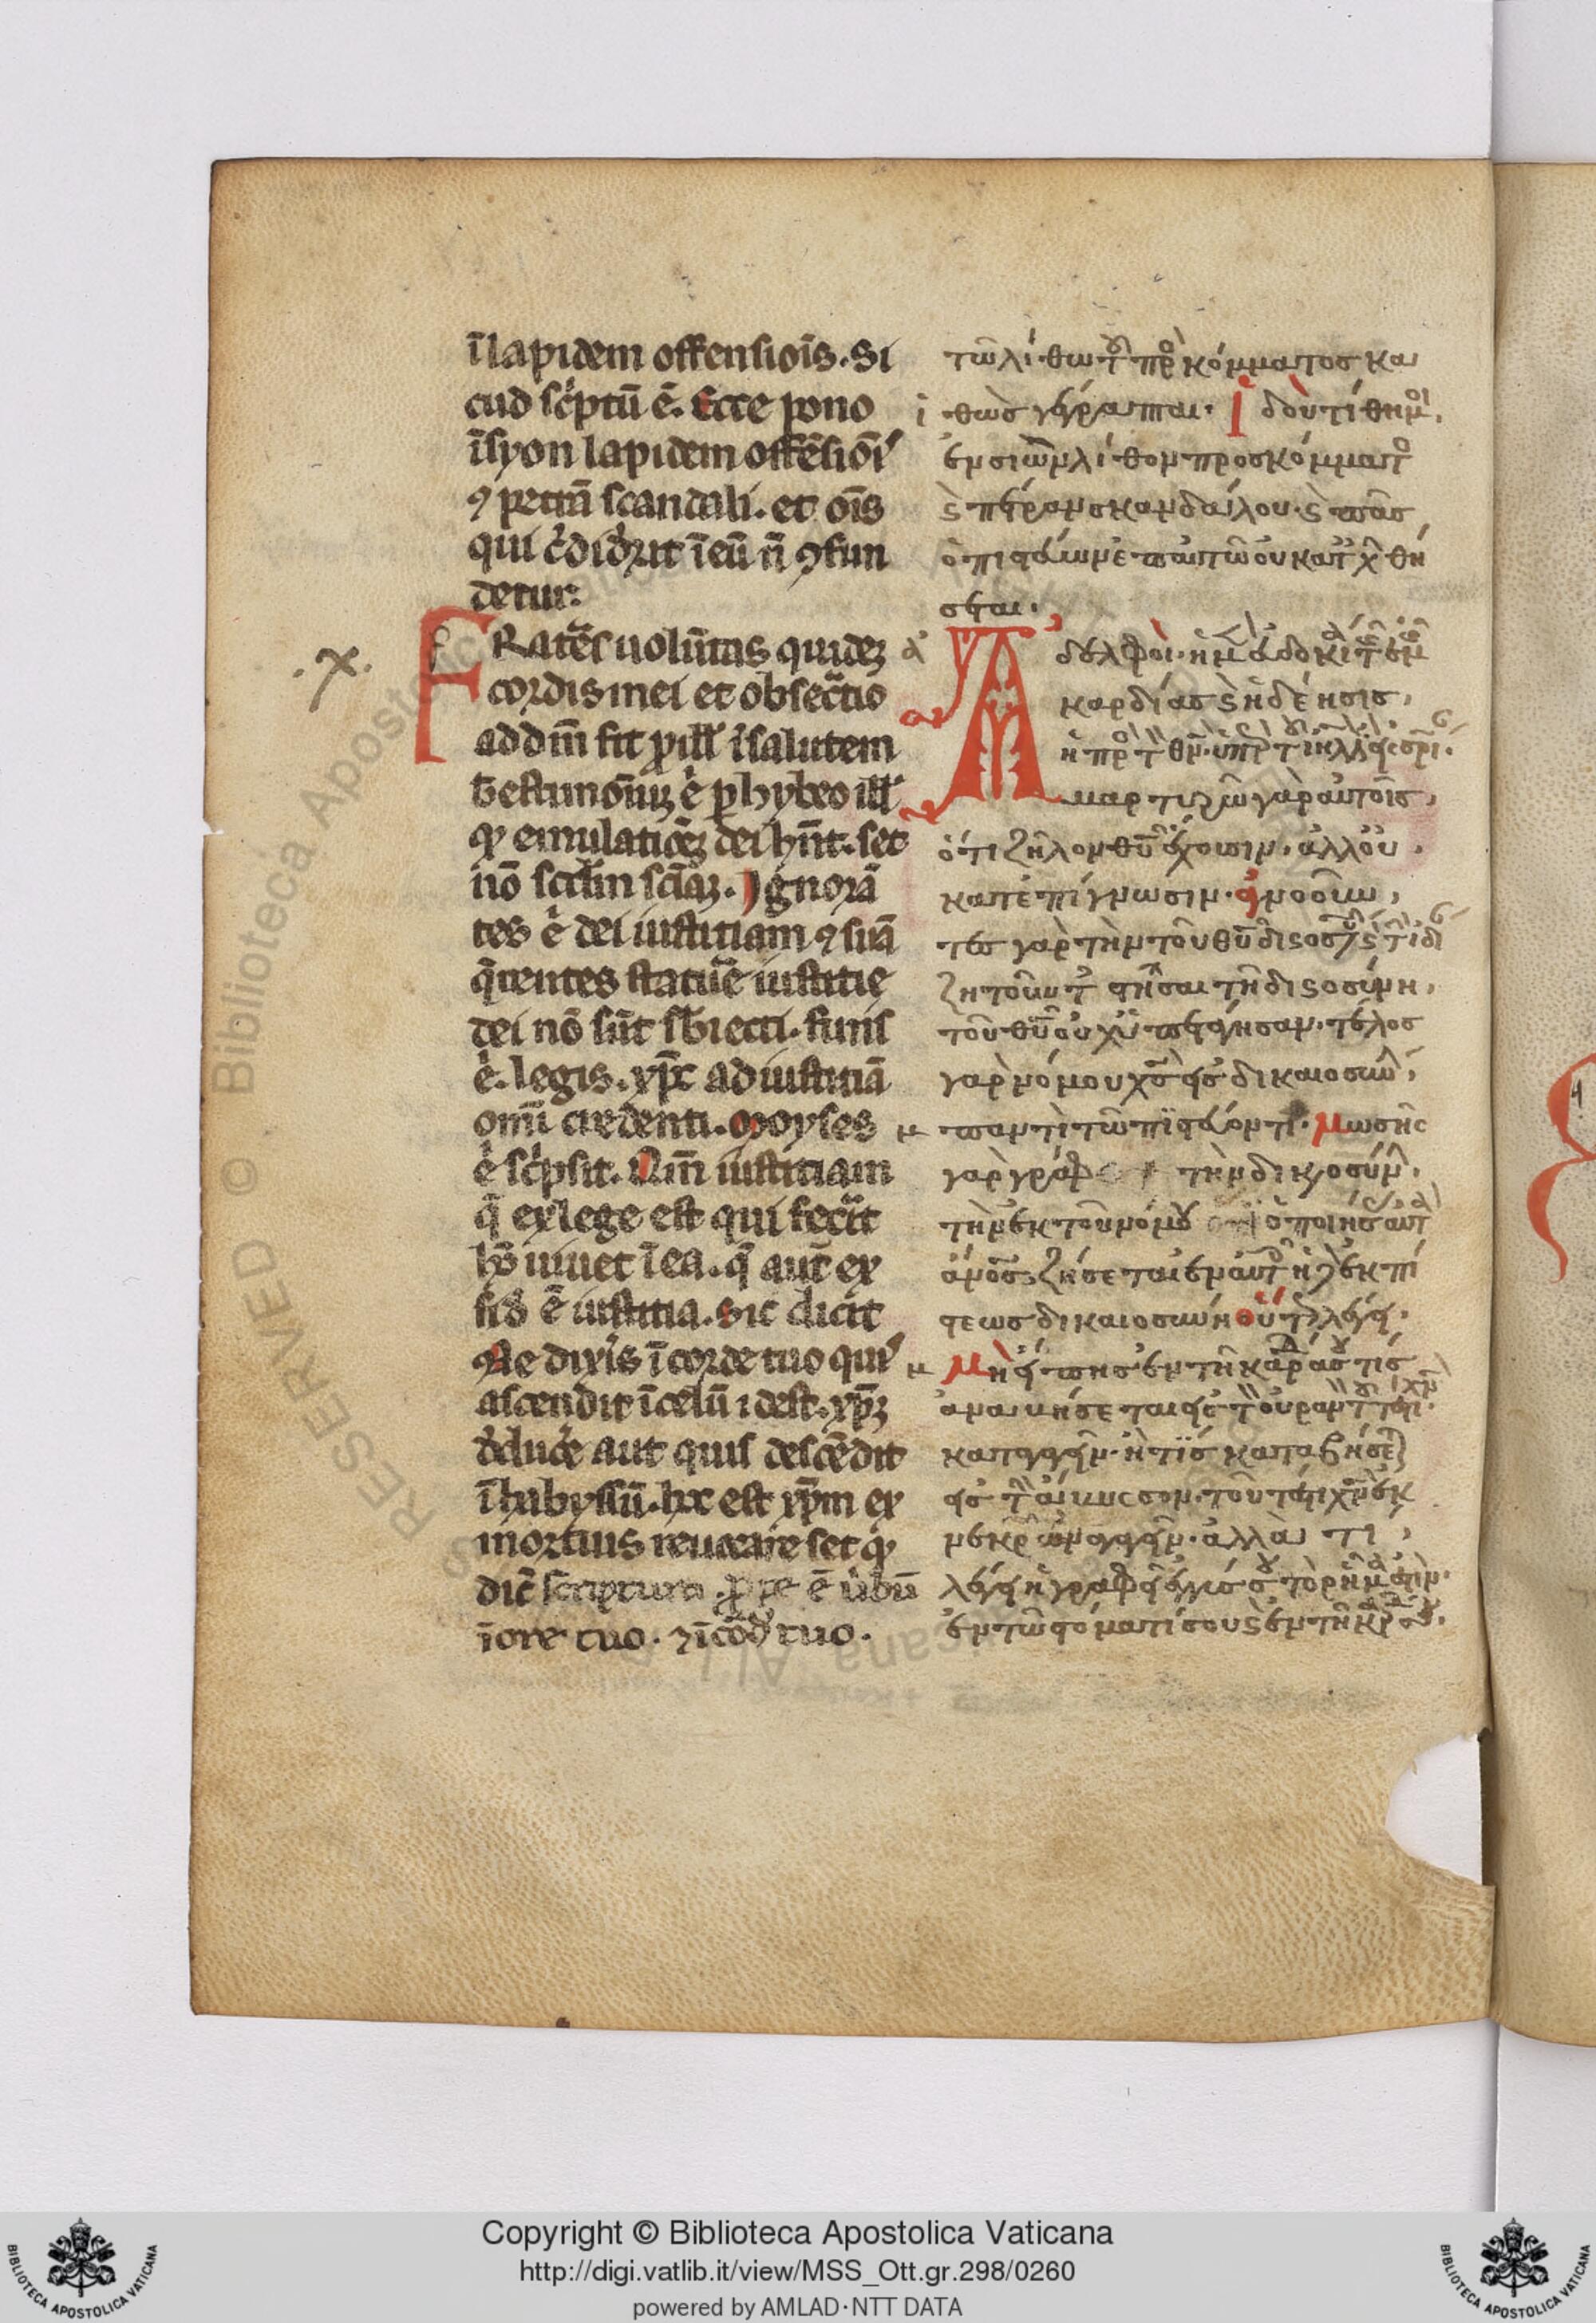 ī lapidem offensioīs. Si
cud sc̓ptū ē. Ecce pono
ī syon lapidem offēsiōī
⁊ petrā scandali. et oīs
qui c̓did̓it ī eū n̄ ꝯfun
detur.
.x.
Fratēs uolūtas quideꝫ
cordis mei et obsec̄tio
ad dm̄ fit ꝓ ill̓ ī salutem
testimōiuꝫ ē̓ ꝑhybeo ill̓
ꝙ emulatiōeꝫ dei hn̄t. set
nō scd̄m sciāꝫ. Ignorā
tes ē̓ dei iustitiam ⁊ suā
q̄rentes statue̓ iustitie
dei nō sūt sb̄iecti. finis
ē̓. legis. xp̄c ad iustitiā
omī credenti. Moyses
ē̓ sc̓psit. Qm̄ iustitiam
q̄ ex lege est qui fec̓it
hō uiuet ī ea. q̄ aut̄ ex
fid̓ ē iustitia. Sic dicit
Ne dixīs ī corde tuo qui
ascendit ī celū idest. xp̄ꝫ
d̓duce̓ aut quis descēdit
ī habyssū. hoc est xp̄m ex
mortuis reuocare set qͥd
dic̄ scriptura. ꝓpe ē ūbū
ī ore tuo. ⁊ ī cōd̓ tuo.
τῶ λίθω τοῦ προσκόμματος κα
θὼς γέγραπται· Ἰδοὺ τίθημι
ἐν σιὼν λίθον προσκόμματο
ϛ πέτραν σκανδάλου· ϛ πᾶς
ὁ πιστεύων ἐπ' αὐτῶ οὐ καταισχυνθή
σεται·
ἀ
Ἀδελφοὶ· ἡ μὲν εὐδοκία τῆς ἐμῆς
καρδίας ϛ ἡ δέησις,
ἡ πρὸς τὸν θν̄· ὑπὲρ τοῦ ἰηλ̄ εἰς σρι̅·
μαρτυρῶ γὰρ αὐτοῖς,
ὅτι ζῆλον θῡ ἔχουσιν· ἀλλ' οὐ
κατ' ἐπίγνωσιν· ἀγνοοῦν,
τες γὰρ τὴν τοῦ θῡ δισοσύ ϛ τὴν ἰδί
ζητοῦντες στῆσαι τῆ δισοσύνη,
τοῦ θῡ οὐχ ὑπετάγησαν· τέλος
γὰρ νόμου χς̄ εἰς δικαιοσύν
παντὶ τῶ πιστεύοντι· Μωσῆς
γὰρ γράφ τὴν δικοσύν
τὴν ἐκ τοῦ νόμου ὁ ποιήσας αὐτὰ
ἄνος̄ ζήσεται ἐν αὐτοῖς ἡ δὲ ἐκ πί
στεως δικαιοσύνη οὕτω λέγει·
Μὴ εἴπης ἐν τῆ καρδία σου τίς
ἀναβήσεται εἰς τὸν οὐρανὸν τοῦτ' ἔστι χν̄
καταγαγεῖν· ἢ τίς καταβήσε
εἰς τὴν ἄβυσσον· τοῦτ' ἔστι χν̄ ἐκ
νεκρῶν ἀναγαγεῖν· ἀλλὰ τι
λέγει ἡ γραφὴ ἐγγύς σου τὸ ρῆμά ἐστιν·
ἐν τῶ στόματί σου ϛ ἐν τῆ καρδία σου.
Copyright © Biblioteca Apostolica Vaticana
http://digi.vatlib.it/view/MSS_Ott.gr.298/0260
powered by AMLAD·NTT DATA